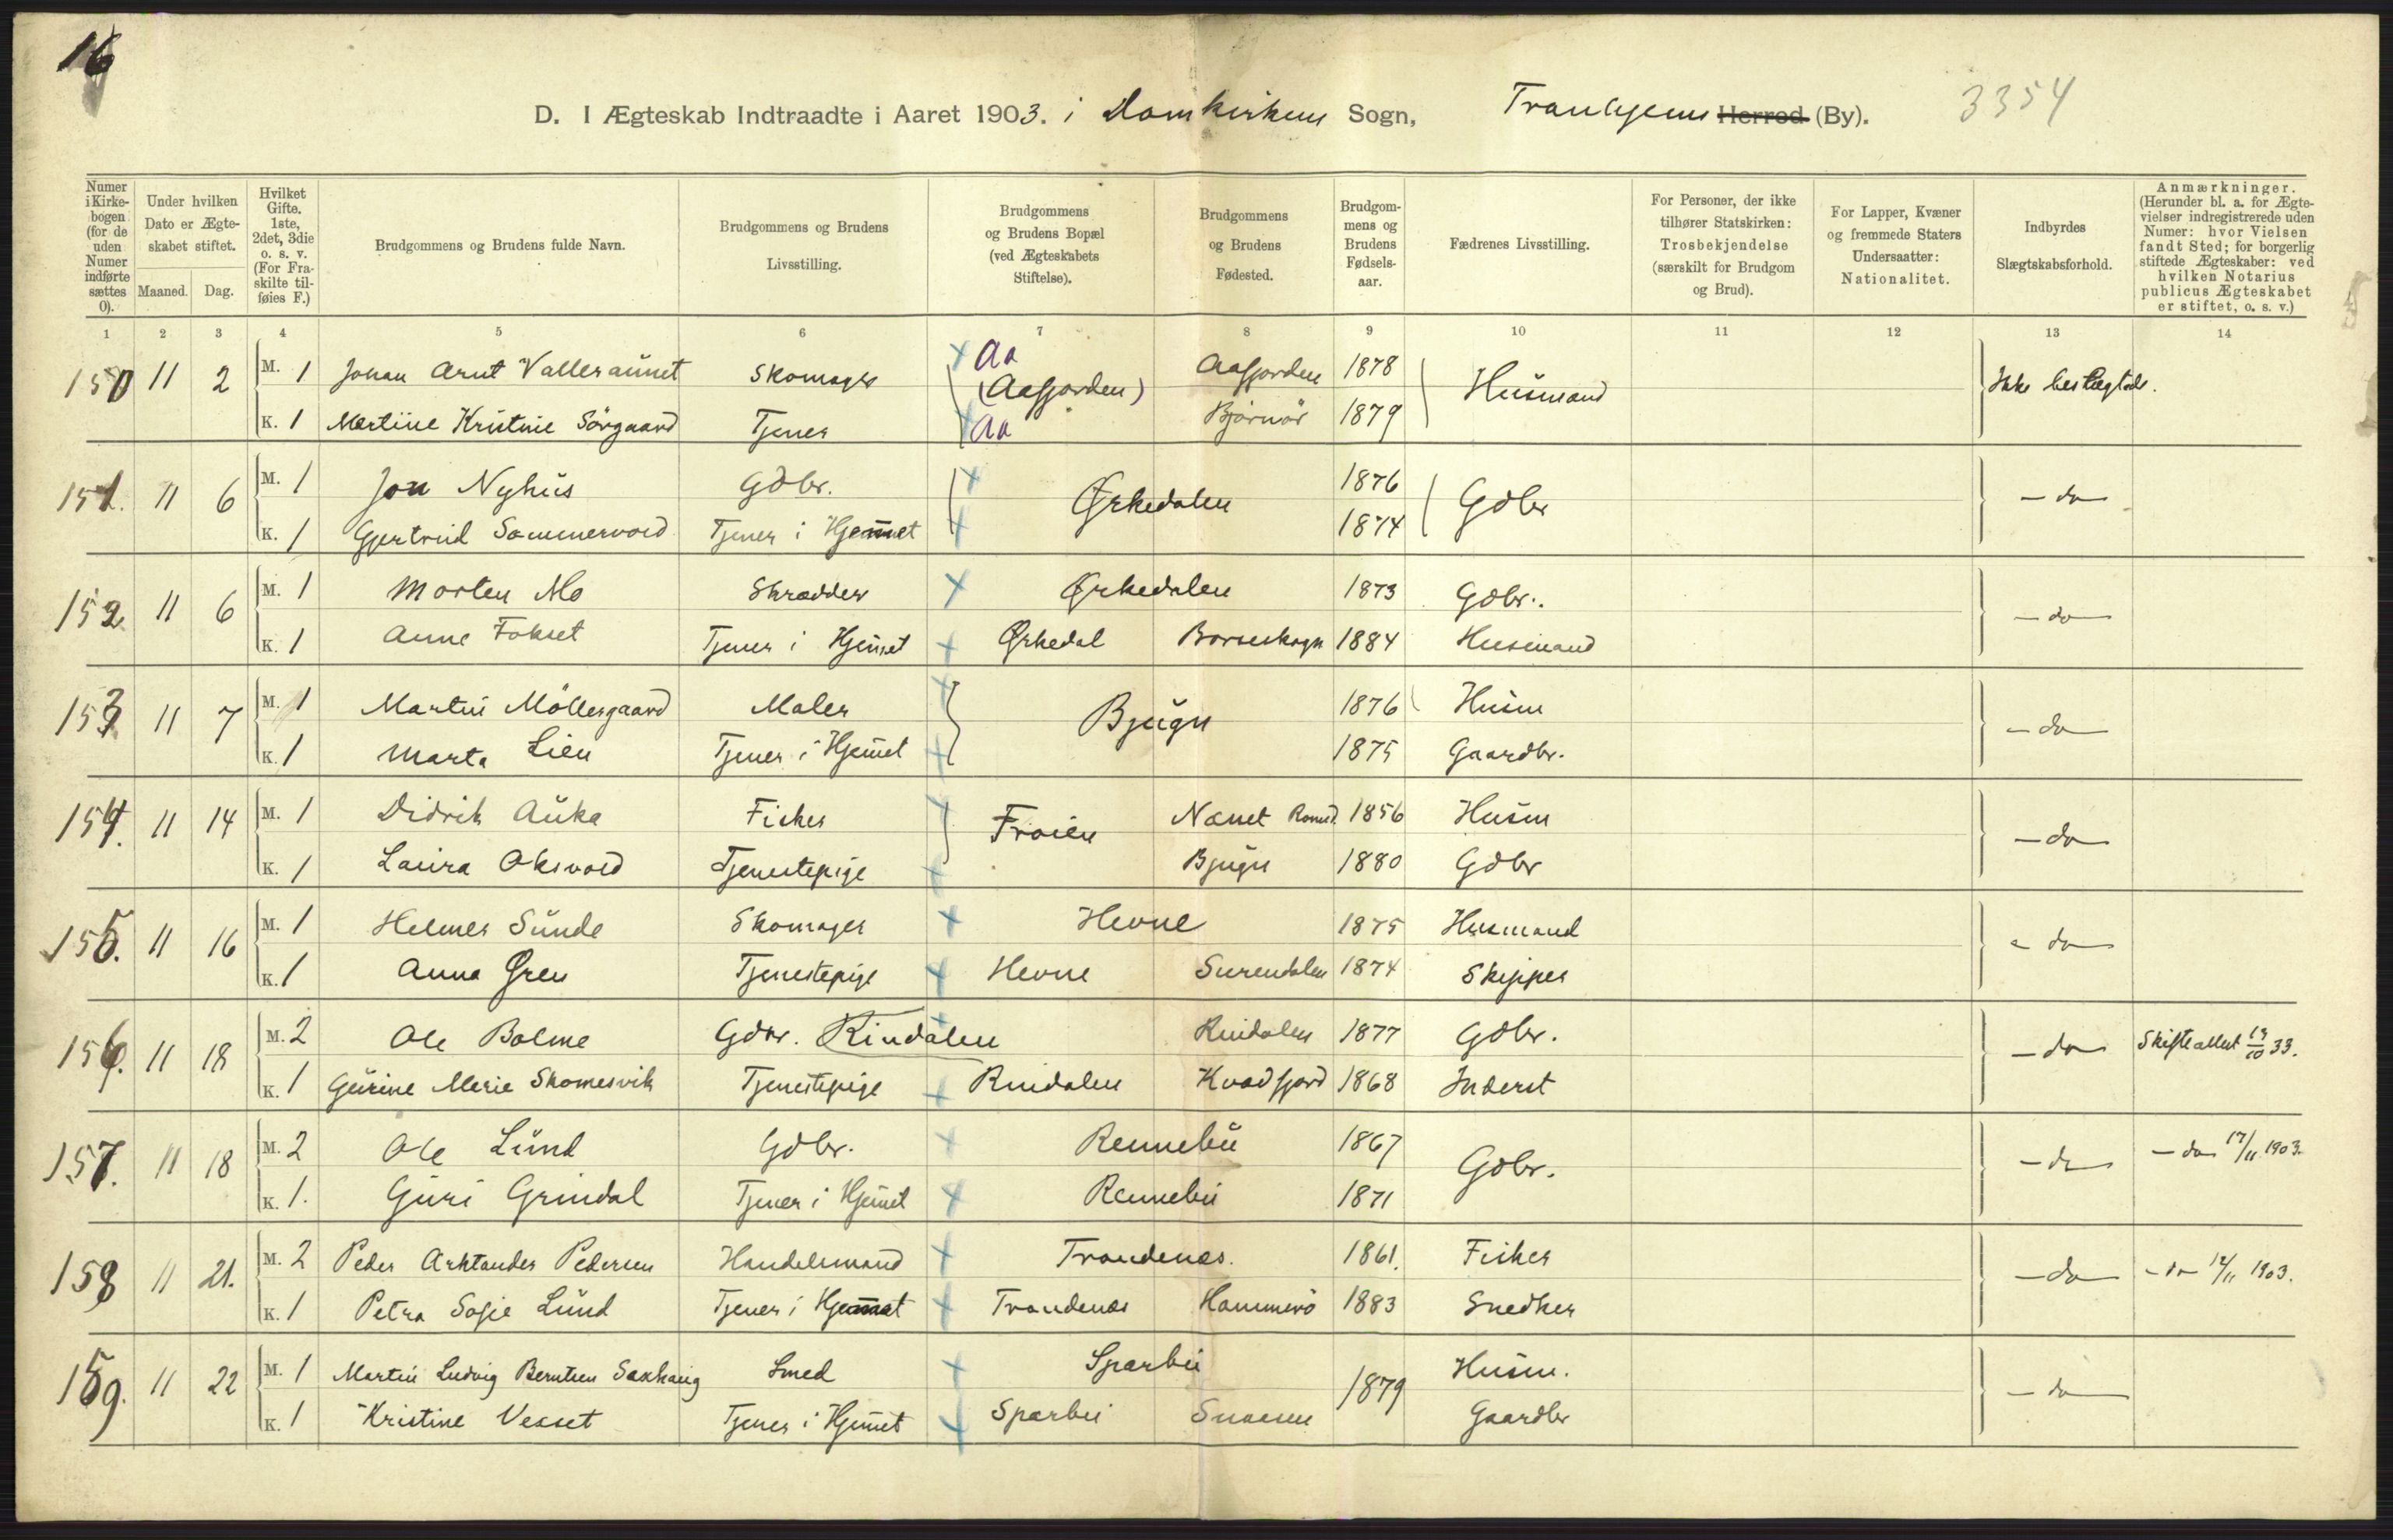 16
D. I Ægteskab Indtraadte i Aaret 1903. i Domkirkens Sogn, Trondhjems Herred (By). 3354
Numer i Kirke-bogen (for de uden Numer indførte sættes 0). | Under hvilken Dato er Ægte-skabet stiftet. Maaned. Dag. | Hvilket Gifte. 1ste, 2det, 3die o. s. v. (For Fra-skilte til-føies F.) | Brudgommens og Brudens fulde Navn. | Brudgommens og Brudens Livsstilling. | Brudgommens og Brudens Bopæl (ved Ægteskabets Stiftelse). | Brudgommens og Brudens Fødested. | Brudgom-mens og Brudens Fødsels-aar. | Fædrenes Livsstilling. | For Personer, der ikke tilhører Statskirken: Trosbekjendelse (særskilt for Brudgom og Brud). | For Lapper, Kvæner og fremmede Staters Undersaatter: Nationalitet. | Indbyrdes Slægtskabsforhold. | Anmærkninger. (Herunder bl. a. for Ægte-vielser indregistrerede uden Numer: hvor Vielsen fandt Sted; for borgerlig stiftede Ægteskaber: ved hvilken Notarius publicus Ægteskabet er stiftet, o. s. v.)
1 2 3 4 5 6 7 8 9 10 11 12 13 14
150 11 2 M. 1 Johan Arnt Valleraunet Skomager Aa (Aafjorden) Aafjorden 1878 Husmand Ikke beslægtede.
K. 1 Martine Kristine Sörgaard Tjener Aa Bjørnör 1879
151. 11 6 M. 1 Jon Nyhus Gdbr. Ørkedalen 1876 Gdbr - do
K. 1 Gjertrud Sommervold Tjener i Hjemmet 1874
152 11 6 M. 1 Morten Mo Skrædder Ørkedalen 1873 Gdbr. - do
K. 1 Anne Fokset Tjener i Hjemet Ørkedal Børseskogn 1884 Husmand
153 11 7 M. 1 Martin Möllergaard Maler Bjugn 1876 Husm - do
K. 1 Marta Lien Tjener i Hjemet 1875 Gaardbr.
154. 11 14 M. 1 Didrik Auka Fisker Froien Næset Romsd. 1856 Husm - do
K. 1 Laura Oksvold Tjenestepige Bjugn 1880 Gdbr
155. 11 16 M. 1 Helmer Sunde Skomager Hevne 1875 Husmand - do
K. 1 Anna Øren Tjenestepige Hevne Surendalen 1874 Skipper
156. 11 18 M. 2 Ole Bolme Gdbr. Rindalen Rindalen 1877 Gdbr. - do Skifteattest 19/10 33.
K. 1 Gurine Merie Skomesvik Tjenestepige Rindalen Kvædfjord 1868 Inderst
157. 11 18 M. 2 Ole Lund Gdbr. Rennebu 1867 Gdbr. - do - do 17/11 1903.
K. 1. Guri Grindal Tjener i Hjemet Rennebu 1871
158 11 21. M. 2 Peder Arktander Pedersen Handelsmand Trondenæs. 1861. Fisker - do - do 12/11 1903.
K. 1 Petra Sofie Lund Tjener i Hjemmet Trondenæs Hammerö 1883 Snedker
159. 11 22 M. 1 Martin Ludvig Berntsen Saxhaug Smed Sparbu 1879 Husm. - do
K. 1 Kristine Vesset Tjener i Hjemet Sparbu Snaasen Gaardbr